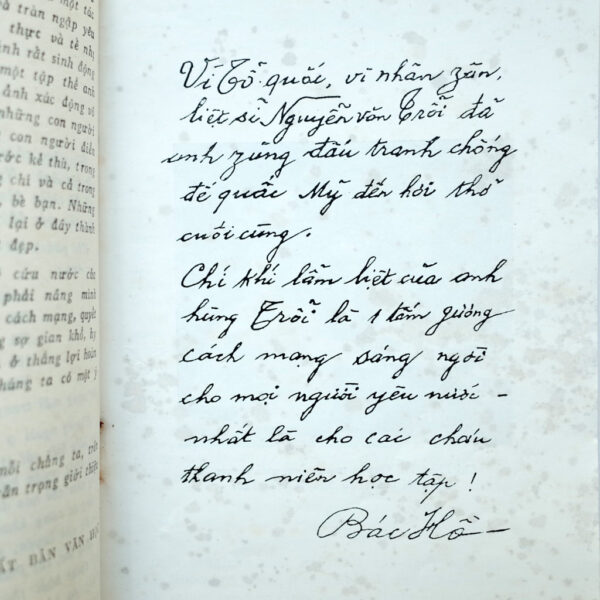 một tác
và tràn ngập yêu
thực và tế nhị
rất sinh động
một tập thể anh
ảnh xúc động về
những con người
con người điển
kẻ thù, trong
chí và cả trong
bè bạn. Những
lại ở đây thành
đẹp.
cứu nước của
phải nâng mình
cách mạng, quyết
sợ gian khổ, hy
ở thắng lợi hoàn
chúng ta có một ý
mỗi chúng ta, trân
trọng giới thiệu
BẢN VĂN
Vì Tổ quốc, vì nhân zân,
liệt sĩ Nguyễn văn Trỗi đã
anh zũng đấu tranh chống
đế quốc Mỹ đến hơi thở
cuối cùng.
Chí khí lẫm liệt của anh
hùng Trỗi là 1 tấm gương
cách mạng sáng ngời
cho mọi người yêu nước –
nhất là cho các cháu
thanh niên học tập !
Bác Hồ –